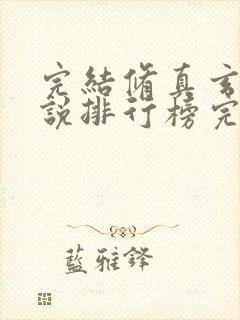 完結脩真玄
說排行榜完
藍雅鐸